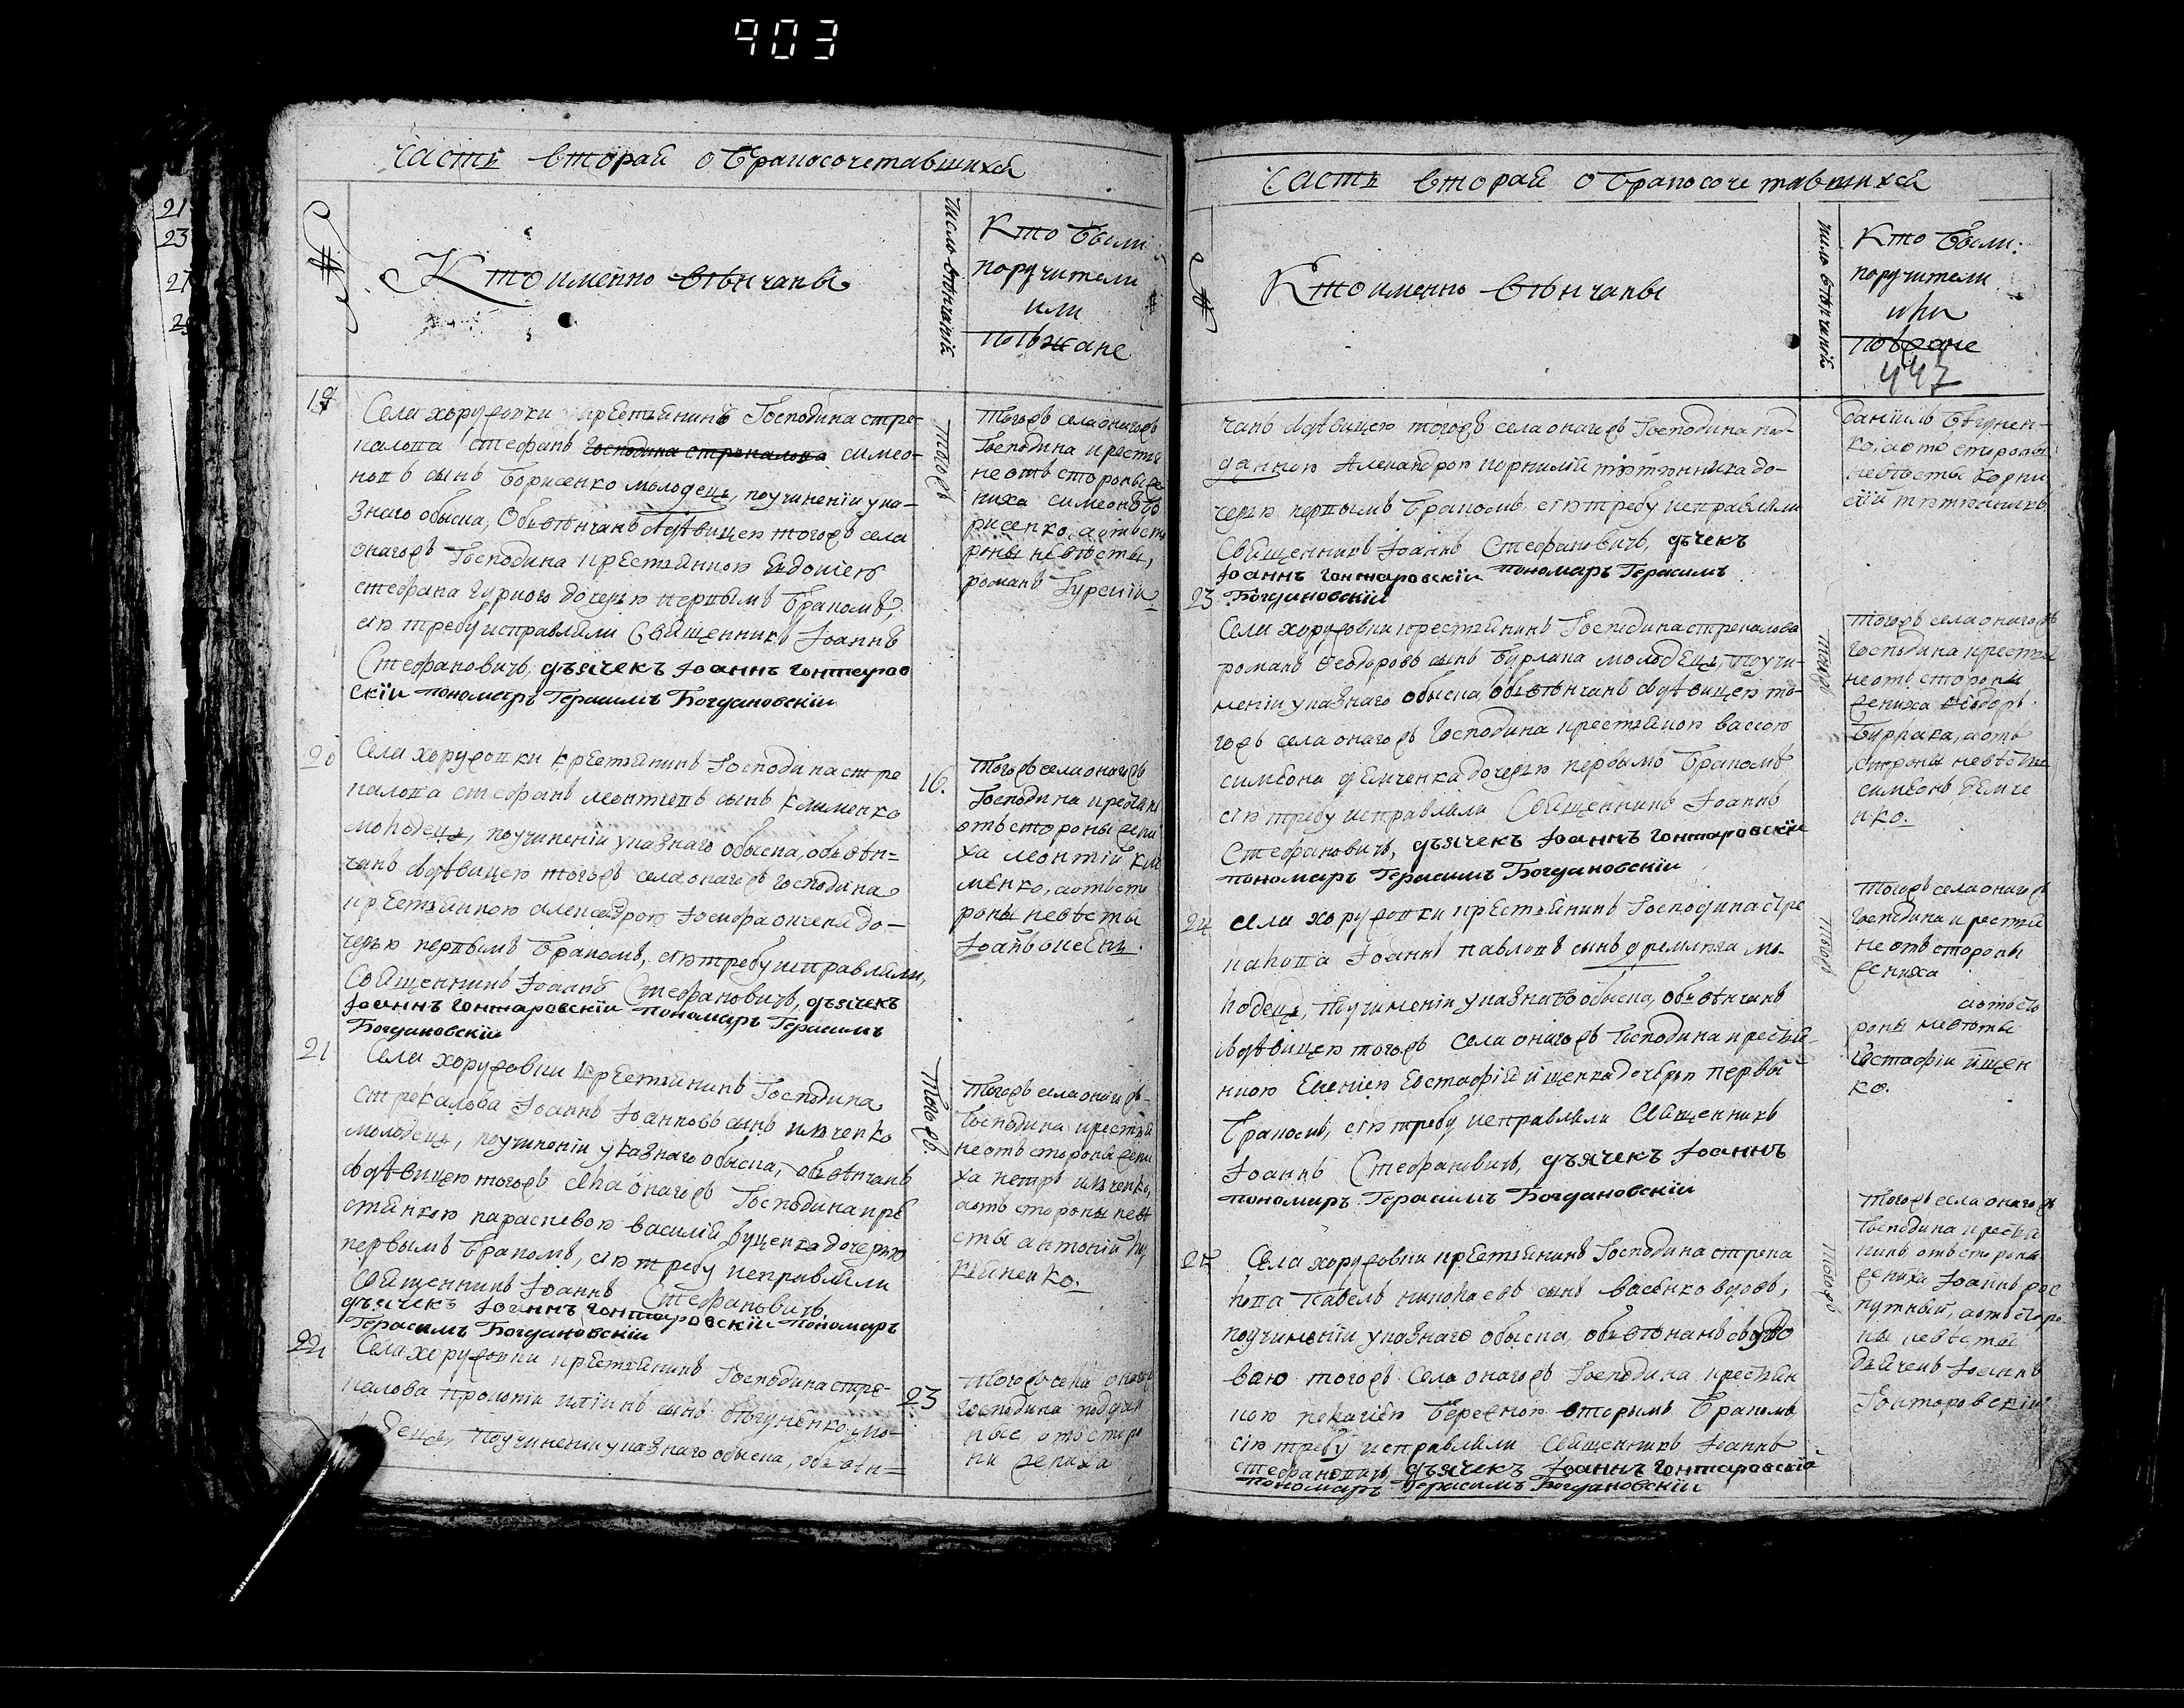 903
21
23
27
Часть вторая о бракосочетавшихся
№
Кто именно вѣнчаны
число вѣнчанія
Кто были
поручители
или
поѣжане
19
Села хоружовки крестьянинъ Господина стре-
калова стефанъ Господина стрекалова симео-
новъ сынъ Борисенко молодецъ, поучиненіи ука-
знаго обыска, Обвѣнчанъ здѣвицею тогожъ села
онагожъ Господина крестьянкою Евдокіею
стефана гурного дочерю первымъ бракомъ,
сію требу исправляли Священникъ Іоаннъ
Стефановичъ, дъячекъ Іоаннъ Гонтаров
скіи пономаръ Герасимъ Богдановскіи
тогожъ
Тогожъ села онагожъ
Господина крестья
не отъ стороны же
ниха симеонъ бо
рисенко, а отъ сто
роны невѣсты,
романъ
20
Села хоружовки крестьянинъ Господина стре
калова стефанъ леонтіевъ сынъ клименко
молодецъ, поучиненіи указнаго обыска, обвѣн=
чанъ здѣвицею тогожъ села онагожъ господина
крестьянкою александрою дочерю
первымъ бракомъ, сію требу исправляли,
Священникъ Іоаннъ Стефановичъ, дъячекъ
Іоаннъ Гонтаровскіи пономаръ Герасимъ
Богдановскіи
16.
Тогожъ села онагожъ
Господина крестьяне
отъ стороны жени
ха леонтій кли
менко, а отъ сто
роны невѣсты
21
Села хоружовки крестьянинъ Господина
стрекалова Іоаннъ Іоанновъ сынъ
молодецъ, поучиненіи указнаго обыска, обвѣнчанъ
здѣвицею тогожъ села онагожъ Господина кре
стьянкою параскевою василія дочерю
первымъ бракомъ, сію требу исправляли
Священникъ Іоаннъ Стефановичъ,
дъячекъ Іоаннъ Гонтаровскіи пономаръ
Герасимъ Богдановскіи
Тогожъ.
Тогожъ села онагожъ
Господина крестья
не отъ стороны жени
ха петръ
а отъ стороны невѣ
сты антоній
22
Села хоружовки крестьянинъ Господина стре-
калова прокопій иліинъ сынъ бѣгуненко мо-
децъ, поучиненіи указнаго обыска, обвѣн=
23
Тогожъ села онагожъ
господина поддан
ные, отъ сторо
ны жениха
Часть вторая о бракосочетавшихся
№
Кто именно вѣнчаны
число вѣнчанія
Кто были
поручители
или
поѣжане
447
чанъ здѣвицею тогожъ села онагожъ Господина под-
данною Александрою корнилія дo-
черю первымъ бракомъ, сію требу исправляли
Священникъ Іоаннъ Стефановичъ, дъчекъ
Іоаннъ Гонтаровскіи пономаръ Герасимъ
Богдановскіи
даніилъ бѣгунен-
ко, а отъ стороны
невѣсты корни
лій
23
Села хоружовки крестьянинъ Господина стрекалова
романъ Ѳеодоровъ сынъ бурлака молодецъ, поучи-
неніи указнаго обыска, обвѣнчанъ здѣвицею то-
гожъ села онагожъ Господина крестьянкою вассою
симеона демченка дочерю первымъ бракомъ
сію требу исправляли Священникъ Іоаннъ
Стефановичъ, дъячекъ Іоаннъ Гонтаровскіи
пономаръ Герасимъ Богдановскіи
тогожъ
Тогожъ села онагожъ
Господина крестья
не отъ стороны
жениха Ѳеодоръ
бурлака, а отъ
стороны невѣсты
симеонъ демче
нко.
24
Села хоружовки крестьянинъ Господина стре
калова Іоаннъ павловъ сынъ дремлюга мо-
лодецъ, поучиненіи указнаго обыска, обвѣнчанъ
здѣвицею тогожъ села онагожъ Господина крестья-
нкою Евстафія йщенка дочерю первый
бракомъ, сію требу исправляли Священникъ
Іоаннъ Стефановичъ, дъячекъ Іоаннъ
пономаръ Герасимъ Богдановскіи
тогожъ
Тогожъ села онагожъ
Господина крестья
не отъ стороны
жениха
а отъ сто
роны невѣсты
Евстафіи йщен
ко.
25
Села хоружовки крестьянинъ Господина стрека
лова Павелъ николаевъ сынъ васенко вдовъ,
поучиненіи указнаго обыска, обвѣнчанъ звдо
вою тогожъ села онагожъ Господина крестьян
кою пелагіею вторымъ бракомъ
сію требу исправляли Священникъ Іоаннъ
стефановичъ, дъячекъ Іоаннъ Гонтаровскіи
пономаръ Герасимъ Богдановскіи
тогожъ
Тогожъ села онагожъ
Господина крестья
нинъ отъ стороны
жениха Іоаннъ рас
путный, а отъ сторо
ны невѣсты
дьячекъ Іоаннъ
Гонтаровскій